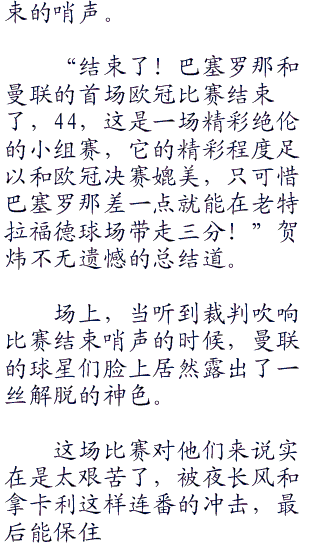 束的哨声。
“结束了！巴塞罗那和
曼联的首场欧冠比赛结束
了，44，这是一场精彩绝伦
的小组赛，它的精彩程度足
以和欧冠决赛媲美，只可惜
巴塞罗那差一点就能在老特
拉福德球场带走三分！”贺
炜不无遗憾的总结道。
场上，当听到裁判吹响
比赛结束哨声的时候，曼联
的球星们脸上居然露出了一
丝解脱的神色。
这场比赛对他们来说实
在是太艰苦了，被夜长风和
拿卡利这样连番的冲击，最
后能保住